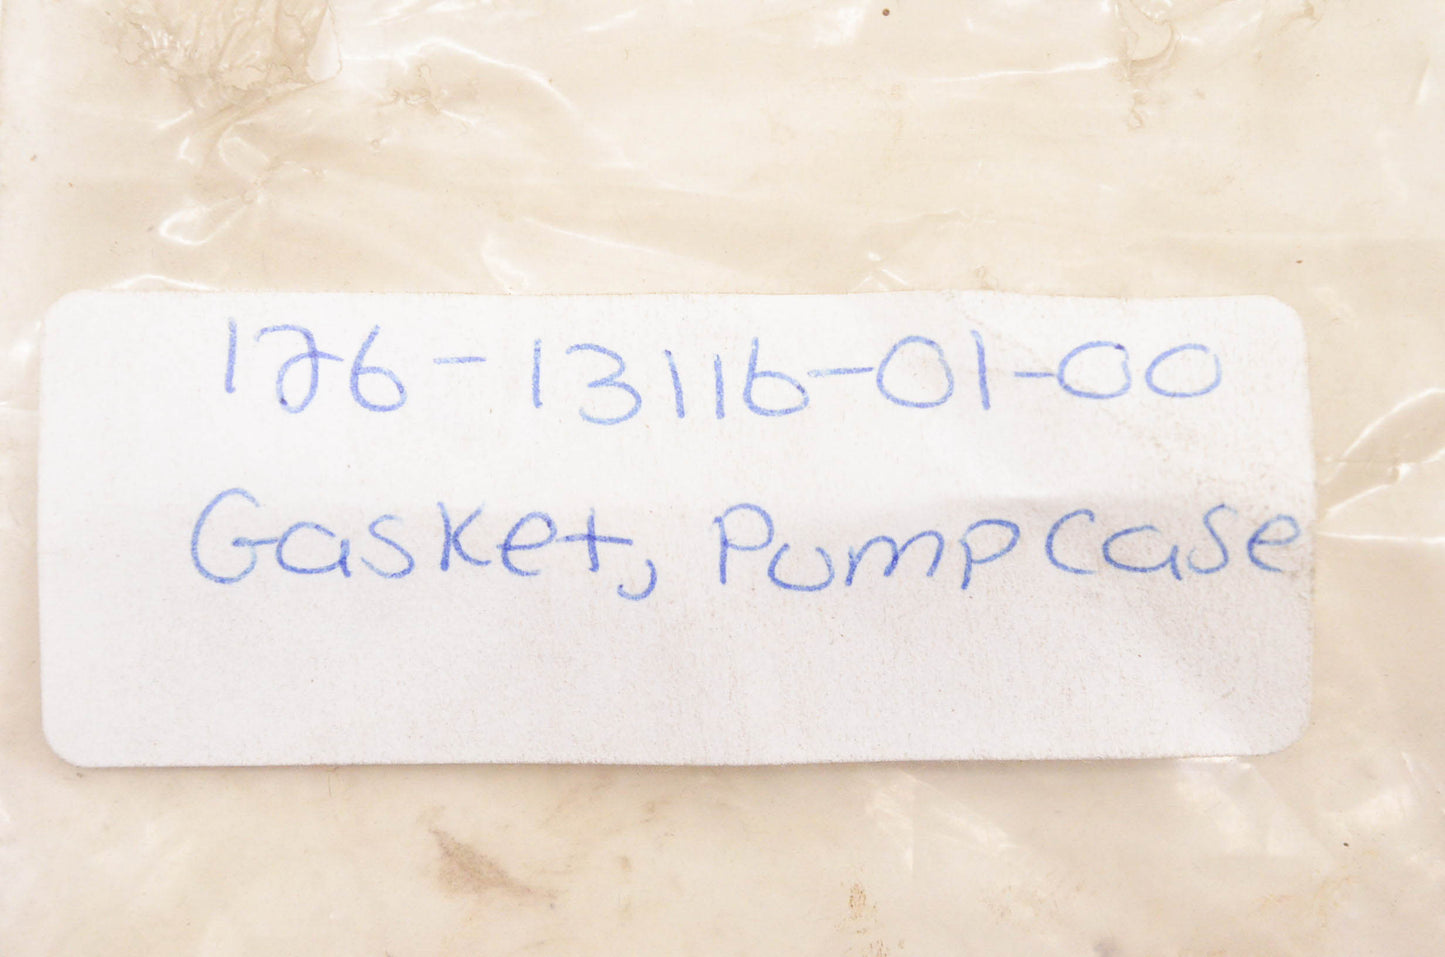 126-13116-01-00
Gasket, Pump Case